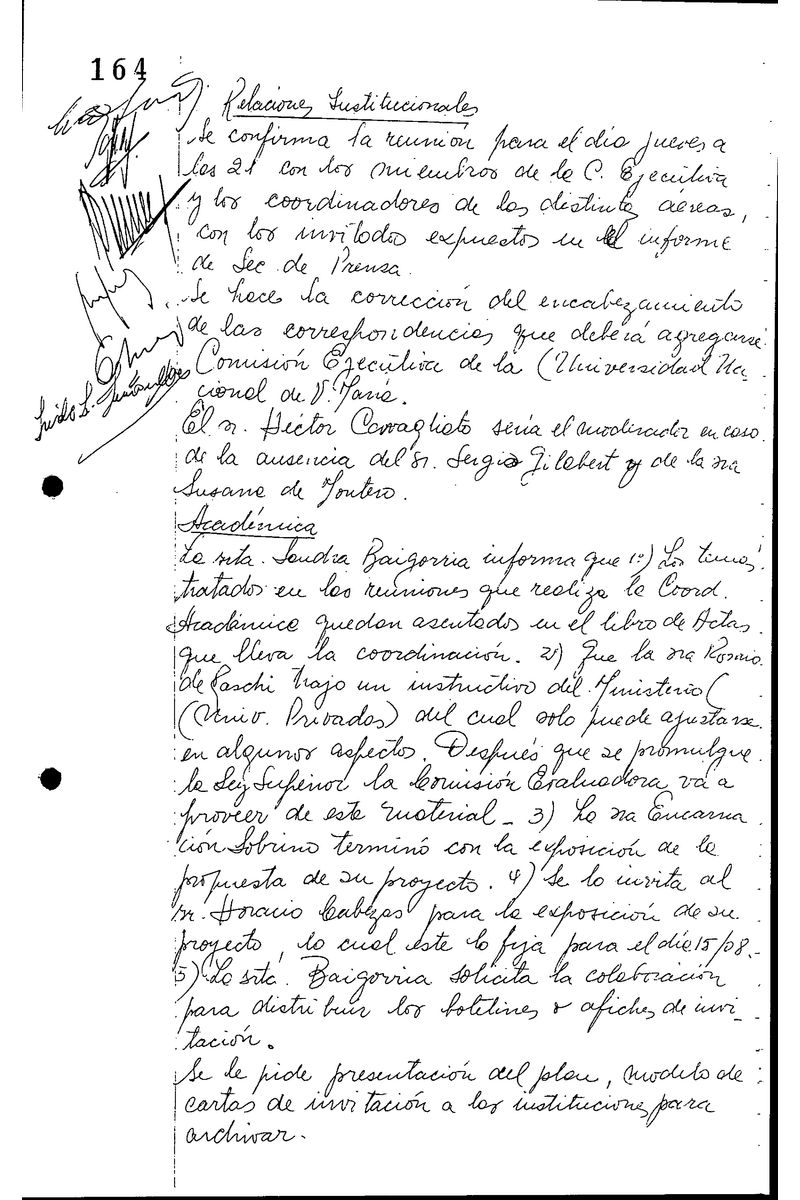 164
Relaciones Institucionales
Se confirma la reunión para el día jueves a
las 21 con los miembros de la C. Ejecutiva
y los coordinadores de las distintas aéreas,
con los invitados expuestos en el informe
de Sec. de Prensa.
Se hace la corrección del encabezamiento
de las correspondencias que deberá agregarse
Comisión Ejecutiva de la (Universidad Na-
cional de V. María.
El sr. Héctor Cavagliato sería el moderador en caso
de la ausencia del sr. Sergio Gilabert y de la sra
Susana de Montero.
Académica
La srta. Sandra Baigorria informa que 1º) Los temas
tratados en las reuniones que realiza la Coord.
Académica quedan asentados en el libro de Actas
que lleva la coordinación. 2º) Que la sra Rosario
de Paschi trajo un instructivo del Ministerio (
(Univ. Privadas) del cual solo puede ajustarse
en algunos aspectos. Después que se promulgue
la Ley Superior la Comisión Evaluadora va a
proveer de este material - 3) La sra Encarna
ción Sobrino terminó con la exposición de la
propuesta de su proyecto. 4) Se lo invita al
sr. Horacio Cabezas para la exposición de su
proyecto, lo cual este lo fija para el día 15/08.-
5) La srta. Baigorria solicita la colaboración
para distribuir los boletines o afiches de invi-
tación.
Se le pide presentación del plan, modelo de
cartas de invitación a las instituciones para
archivar.